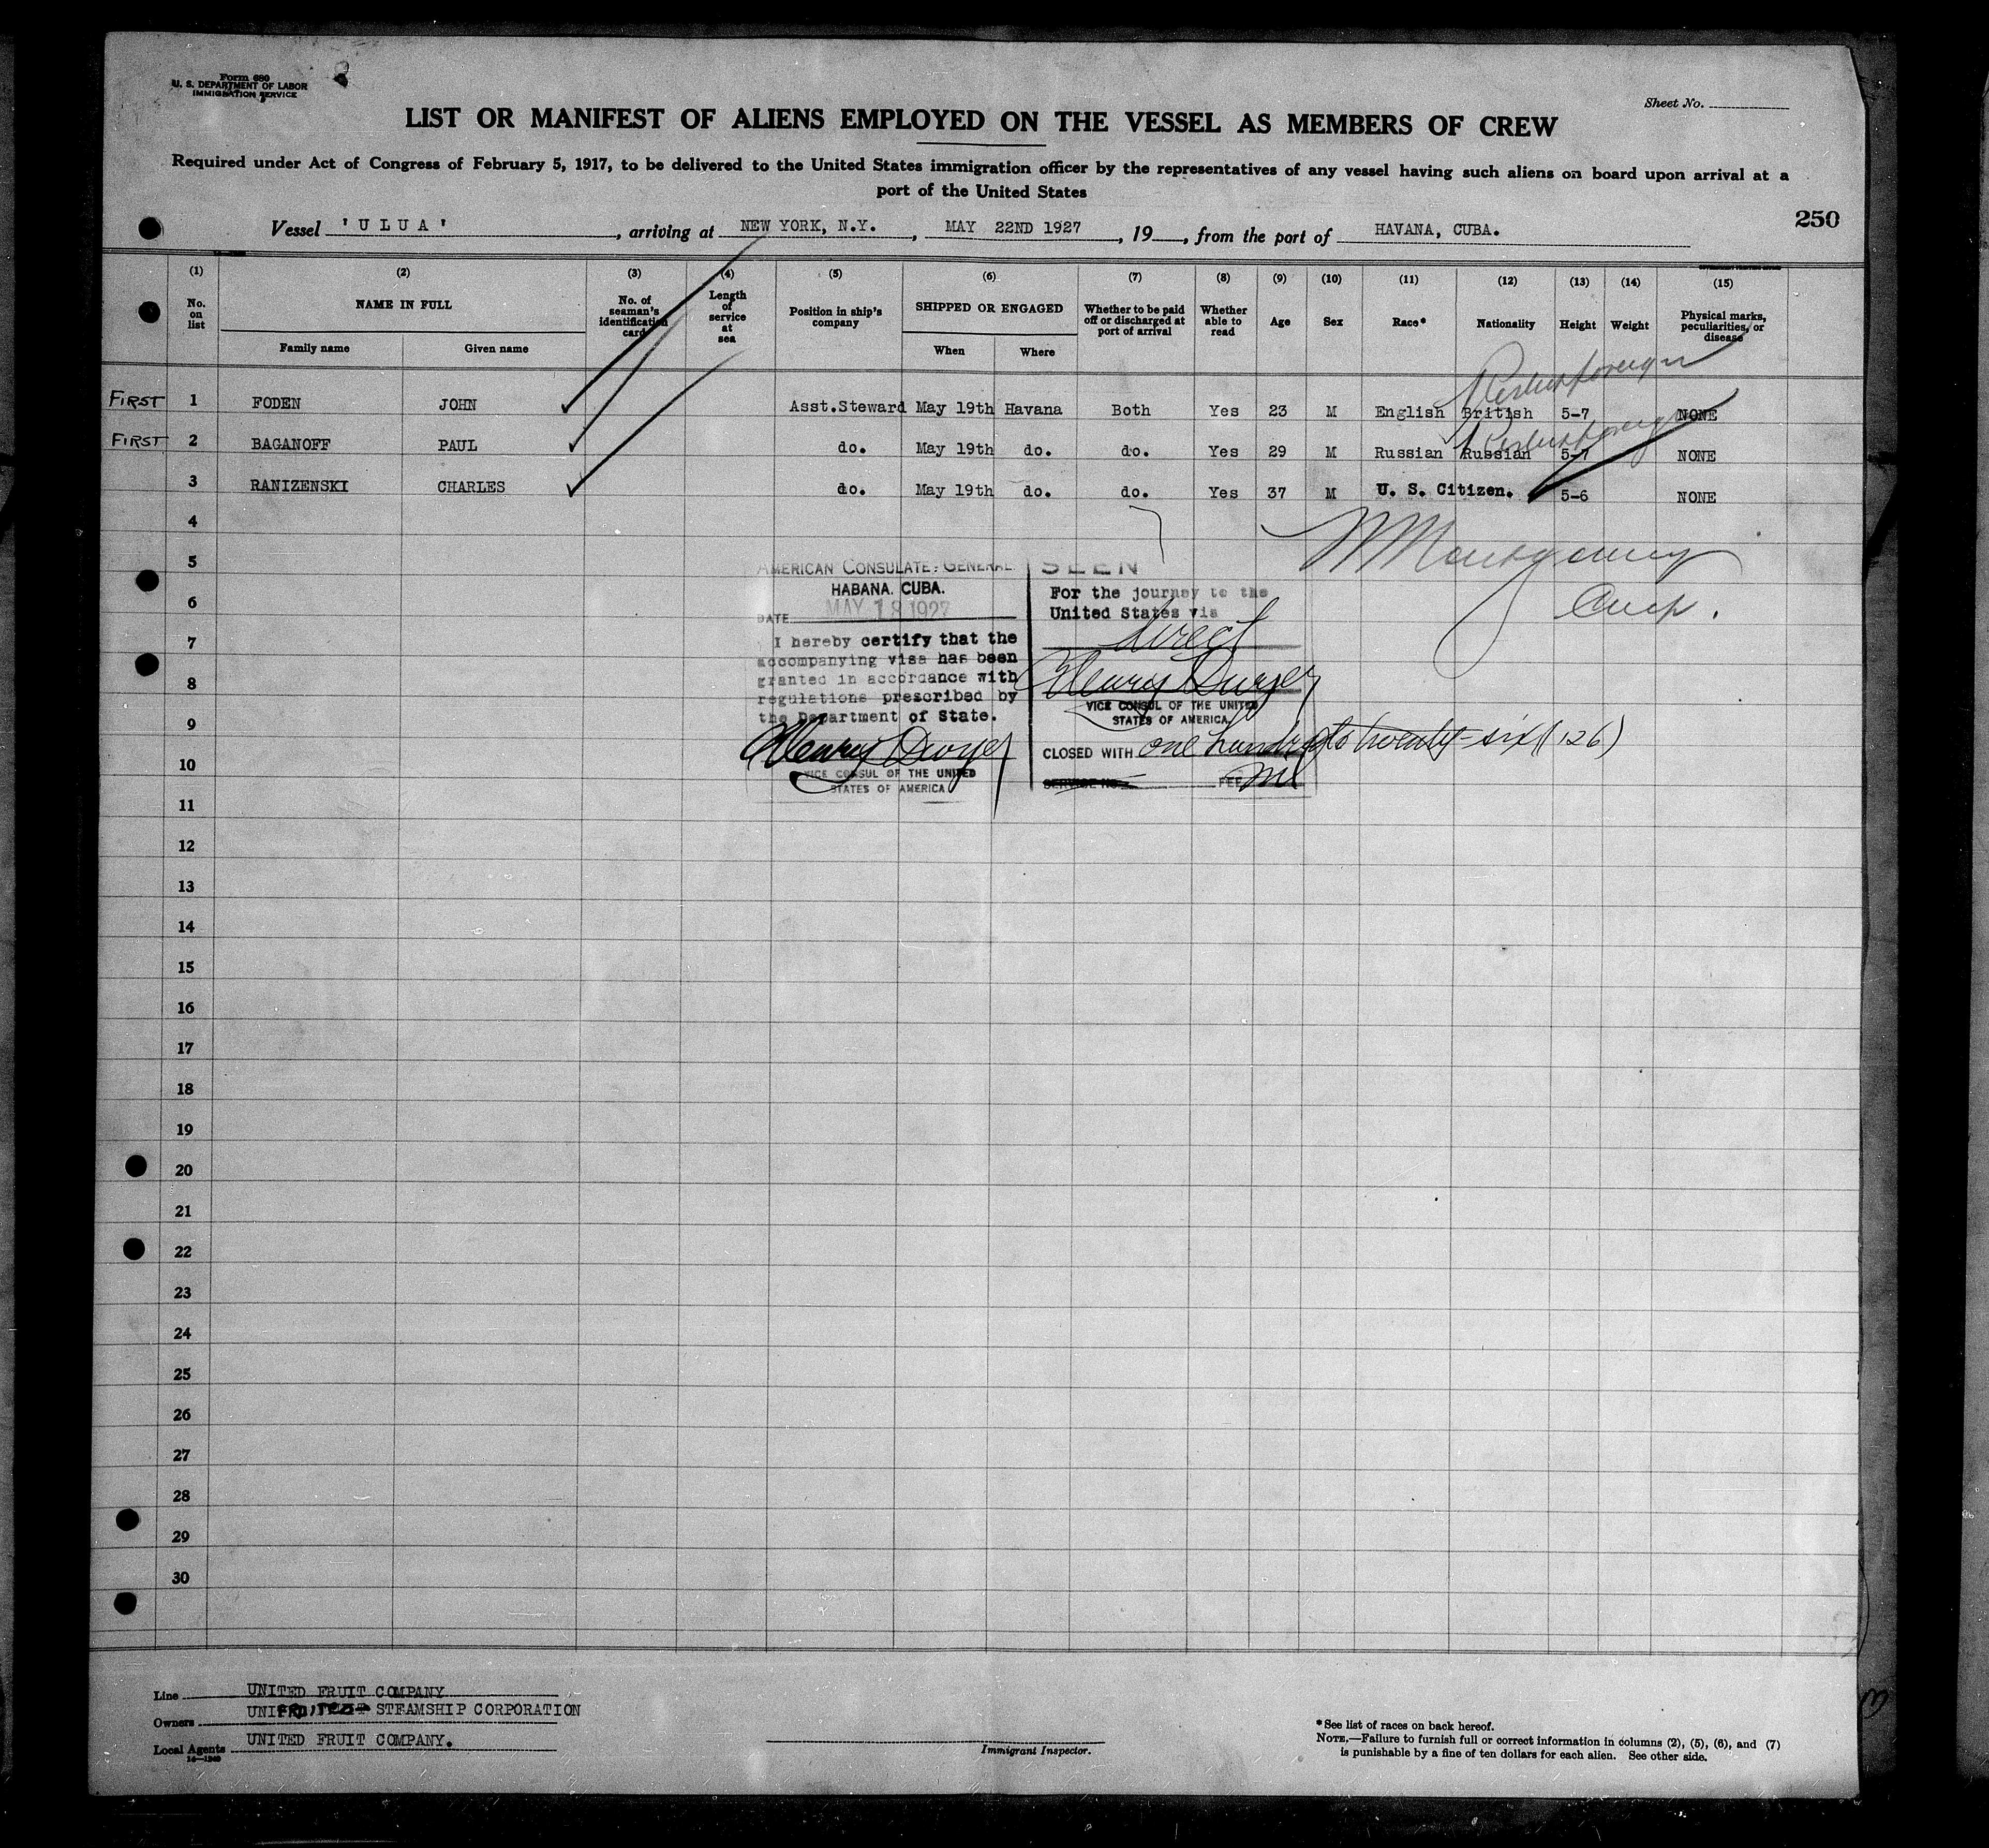 Form 680
U. S. DEPARTMENT OF LABOR
IMMIGRATION SERVICE
Sheet No.
LIST OR MANIFEST OF ALIENS EMPLOYED ON THE VESSEL AS MEMBERS OF CREW
Required under Act of Congress of February 5, 1917, to be delivered to the United States immigration officer by the representatives of any vessel having such aliens on board upon arrival at a
port of the United States
250
Vessel 'ULUA', arriving at NEW YORK, N.Y., MAY 22ND 1927, 19, from the port of HAVANA, CUBA.
(1) (2) (3) (4) (5) (6) (7) (8) (9) (10) (11) (12) (13) (14) (15)
No. on list NAME IN FULL No. of seaman's identification card Length of service at sea Position in ship's company SHIPPED OR ENGAGED Whether to be paid off or discharged at port of arrival Whether able to read Age Sex Race* Nationality Height Weight Physical marks, peculiarities, or disease
Family name Given name When Where
FIRST 1 FODEN JOHN Asst.Steward May 19th Havana Both Yes 23 M English British 5-7 NONE
FIRST 2 BAGANOFF PAUL do. May 19th do. do. Yes 29 M Russian Russian 5-7 NONE
3 RANIZENSKI CHARLES do. May 19th do. do. Yes 37 M U. S. Citizen. 5-6 NONE
4
5
6
7
8
9
10
11
12
13
14
15
16
17
18
19
20
21
22
23
24
25
26
27
28
29
30
AMERICAN CONSULATE GENERAL
HABANA. CUBA.
DATE MAY 18 1927
I hereby certify that the
accompanying visa has been
granted in accordance with
regulations prescribed by
the Department of State.
Henry Dwyer
VICE CONSUL OF THE UNITED
STATES OF AMERICA
SEEN
For the journey to the
United States via
direct
Henry Dwyer
VICE CONSUL OF THE UNITED
STATES OF AMERICA.
CLOSED WITH one hundred twenty-six (126)
SERVICE NO. FEE nil
W Montgomery
Line UNITED FRUIT COMPANY
Owners STEAMSHIP CORPORATION
Local Agents UNITED FRUIT COMPANY.
14—1240
Immigrant Inspector.
*See list of races on back hereof.
NOTE.—Failure to furnish full or correct information in columns (2), (5), (6), and (7)
is punishable by a fine of ten dollars for each alien. See other side.